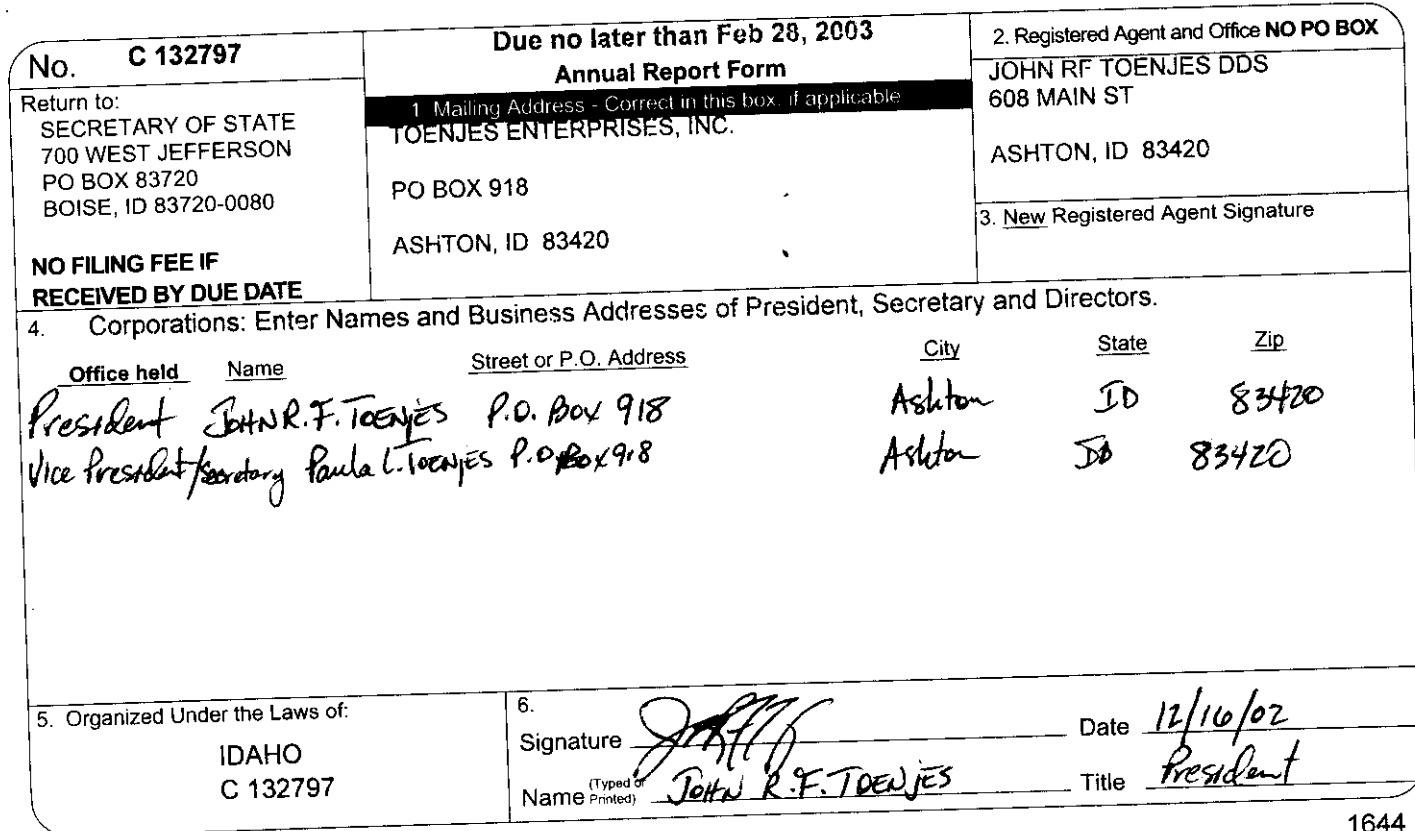 No. C 132797
Return to:
SECRETARY OF STATE
700 WEST JEFFERSON
PO BOX 83720
BOISE, ID 83720-0080
NO FILING FEE IF
RECEIVED BY DUE DATE
Due no later than Feb 28, 2003
Annual Report Form
1 Mailing Address - Correct in this box, if applicable
TOENJES ENTERPRISES, INC.
PO BOX 918
ASHTON, ID 83420
2. Registered Agent and Office NO PO BOX
JOHN RF TOENJES DDS
608 MAIN ST
ASHTON, ID 83420
3. New Registered Agent Signature
4. Corporations: Enter Names and Business Addresses of President, Secretary and Directors.
Office held Name Street or P.O. Address City State Zip
President JOHN R.F. TOENJES P.O. Box 918 Ashton ID 83420
Vice President/Secretary Paula L. TOENJES P.O. Box 918 Ashton ID 83420
5. Organized Under the Laws of:
IDAHO
C 132797
6.
Signature Date 12/16/02
Name (Typed or Printed) JOHN R.F. TOENJES Title President
1644